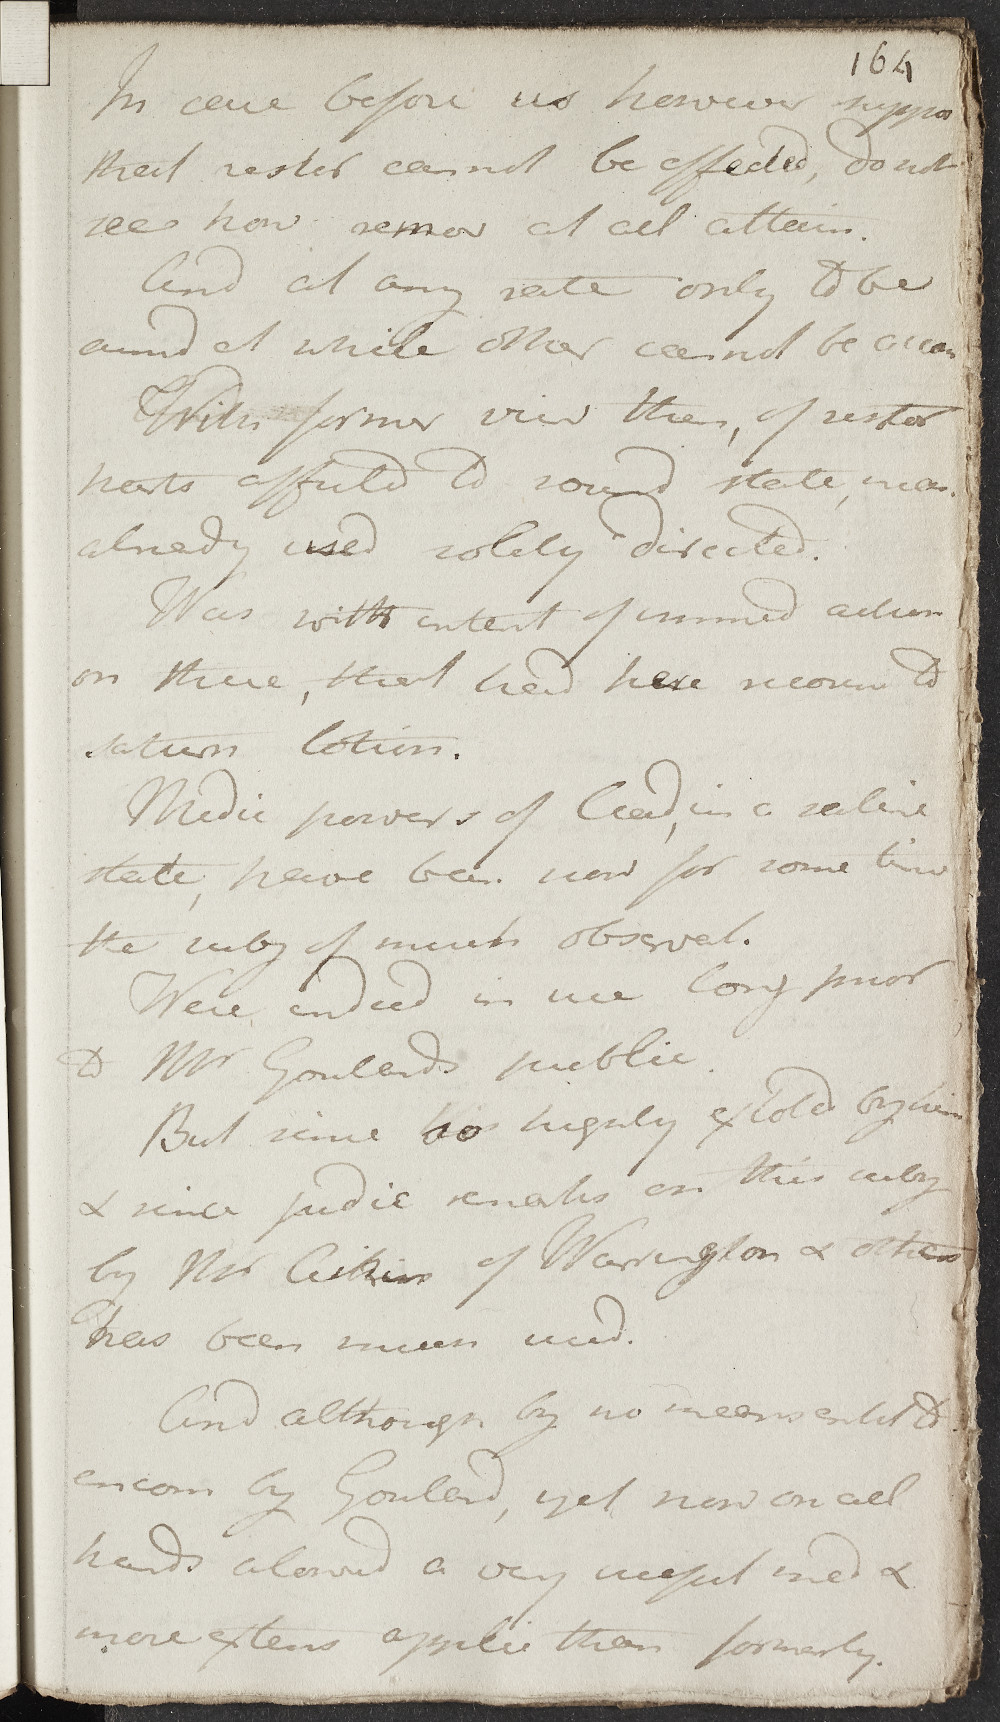 164
In case before us however suppos
that restor cannot be effected, do not
see how remov at all attain.
And at any rate only to be
aimd at while other cannot be accom
With former view then, of restor
parts affected to sound state, meas.
already used solely directed.
Was with intent of immed action
on these, that had here recours to
saturn lotion.
Medic powers of lead, in a saline
state, have been now for some time
the subj of much observat.
Were indeed in use long prior
to Mr Goulards public.
But since so highly extold by him
& since judic remarks on this subj
by Mr Aikin of Warrington & others
has been much used.
And although by no means entitl to
encom by Goulard, yet now on all
hands allowd a very useful med &
more extens applic than formerly.